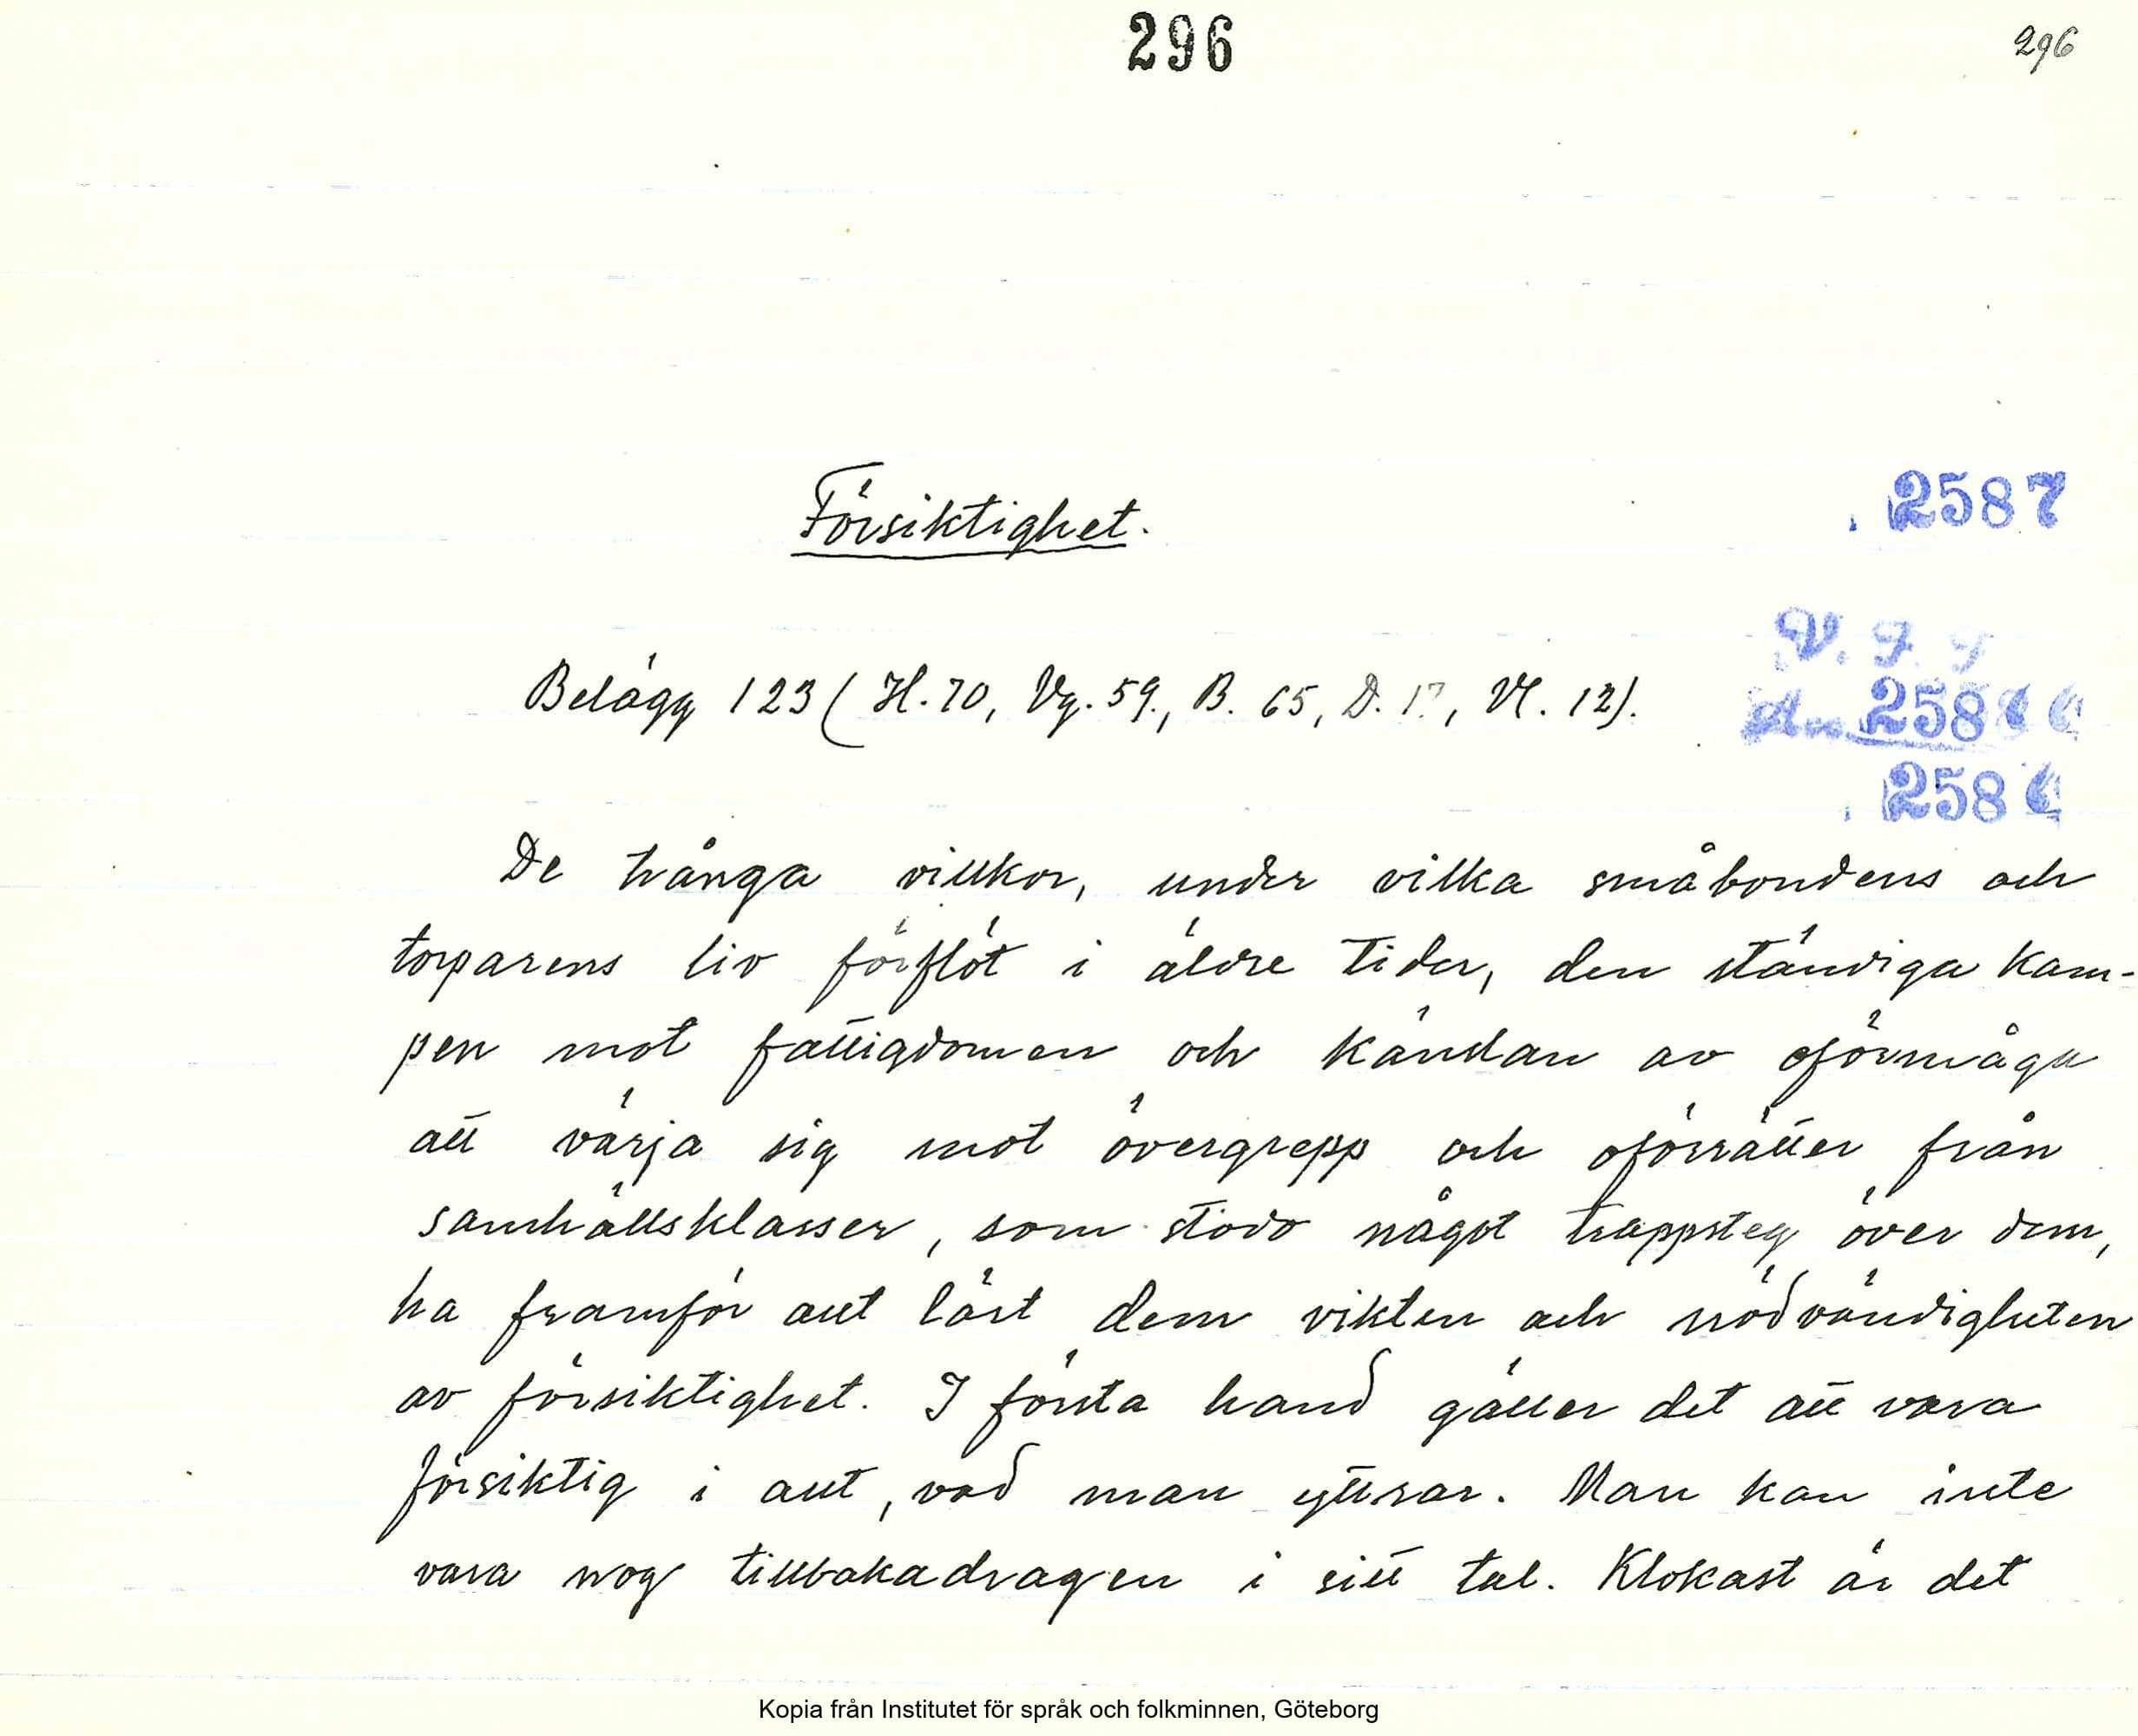 296
296
Försiktighet.
2587
Belägg 123 (H. 70, Vg. 59., B. 65, D. 17, Vl. 12).
V. G. G
258
258
De trånga villkor, under vilka småbondens och
torparens liv förflöt i äldre tider, den ständiga kam-
pen mot fattigdomen och känslan av oförmåga
att värja sig mot övergrepp och oförrätter från
samhällsklasser, som stodo något trappsteg över dem,
ha framför allt lärt dem vikten och nödvändigheten
av försiktighet. I första hand gäller det att vara
försiktig i allt, vad man yttrar. Man kan inte
vara nog tillbakadragen i sitt tal. Klokast är det
Kopia från Institutet för språk och folkminnen, Göteborg